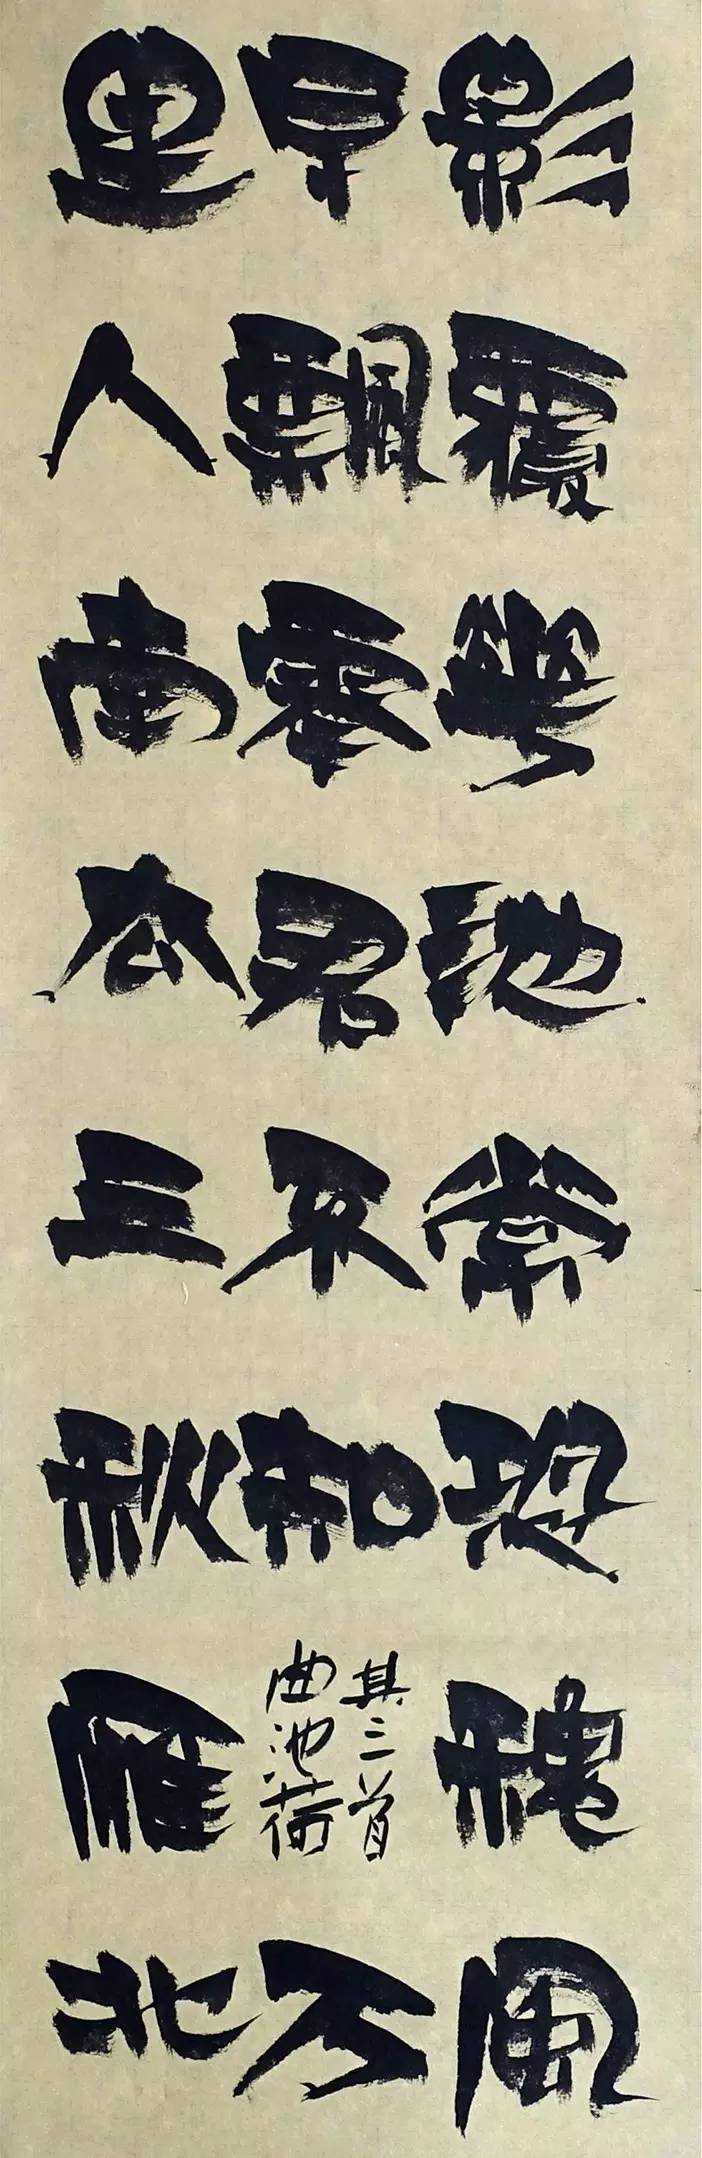 影覆華池常恐穐風
早飄零君不知
其二首
曲池荷
万
里人南去三秋雁北